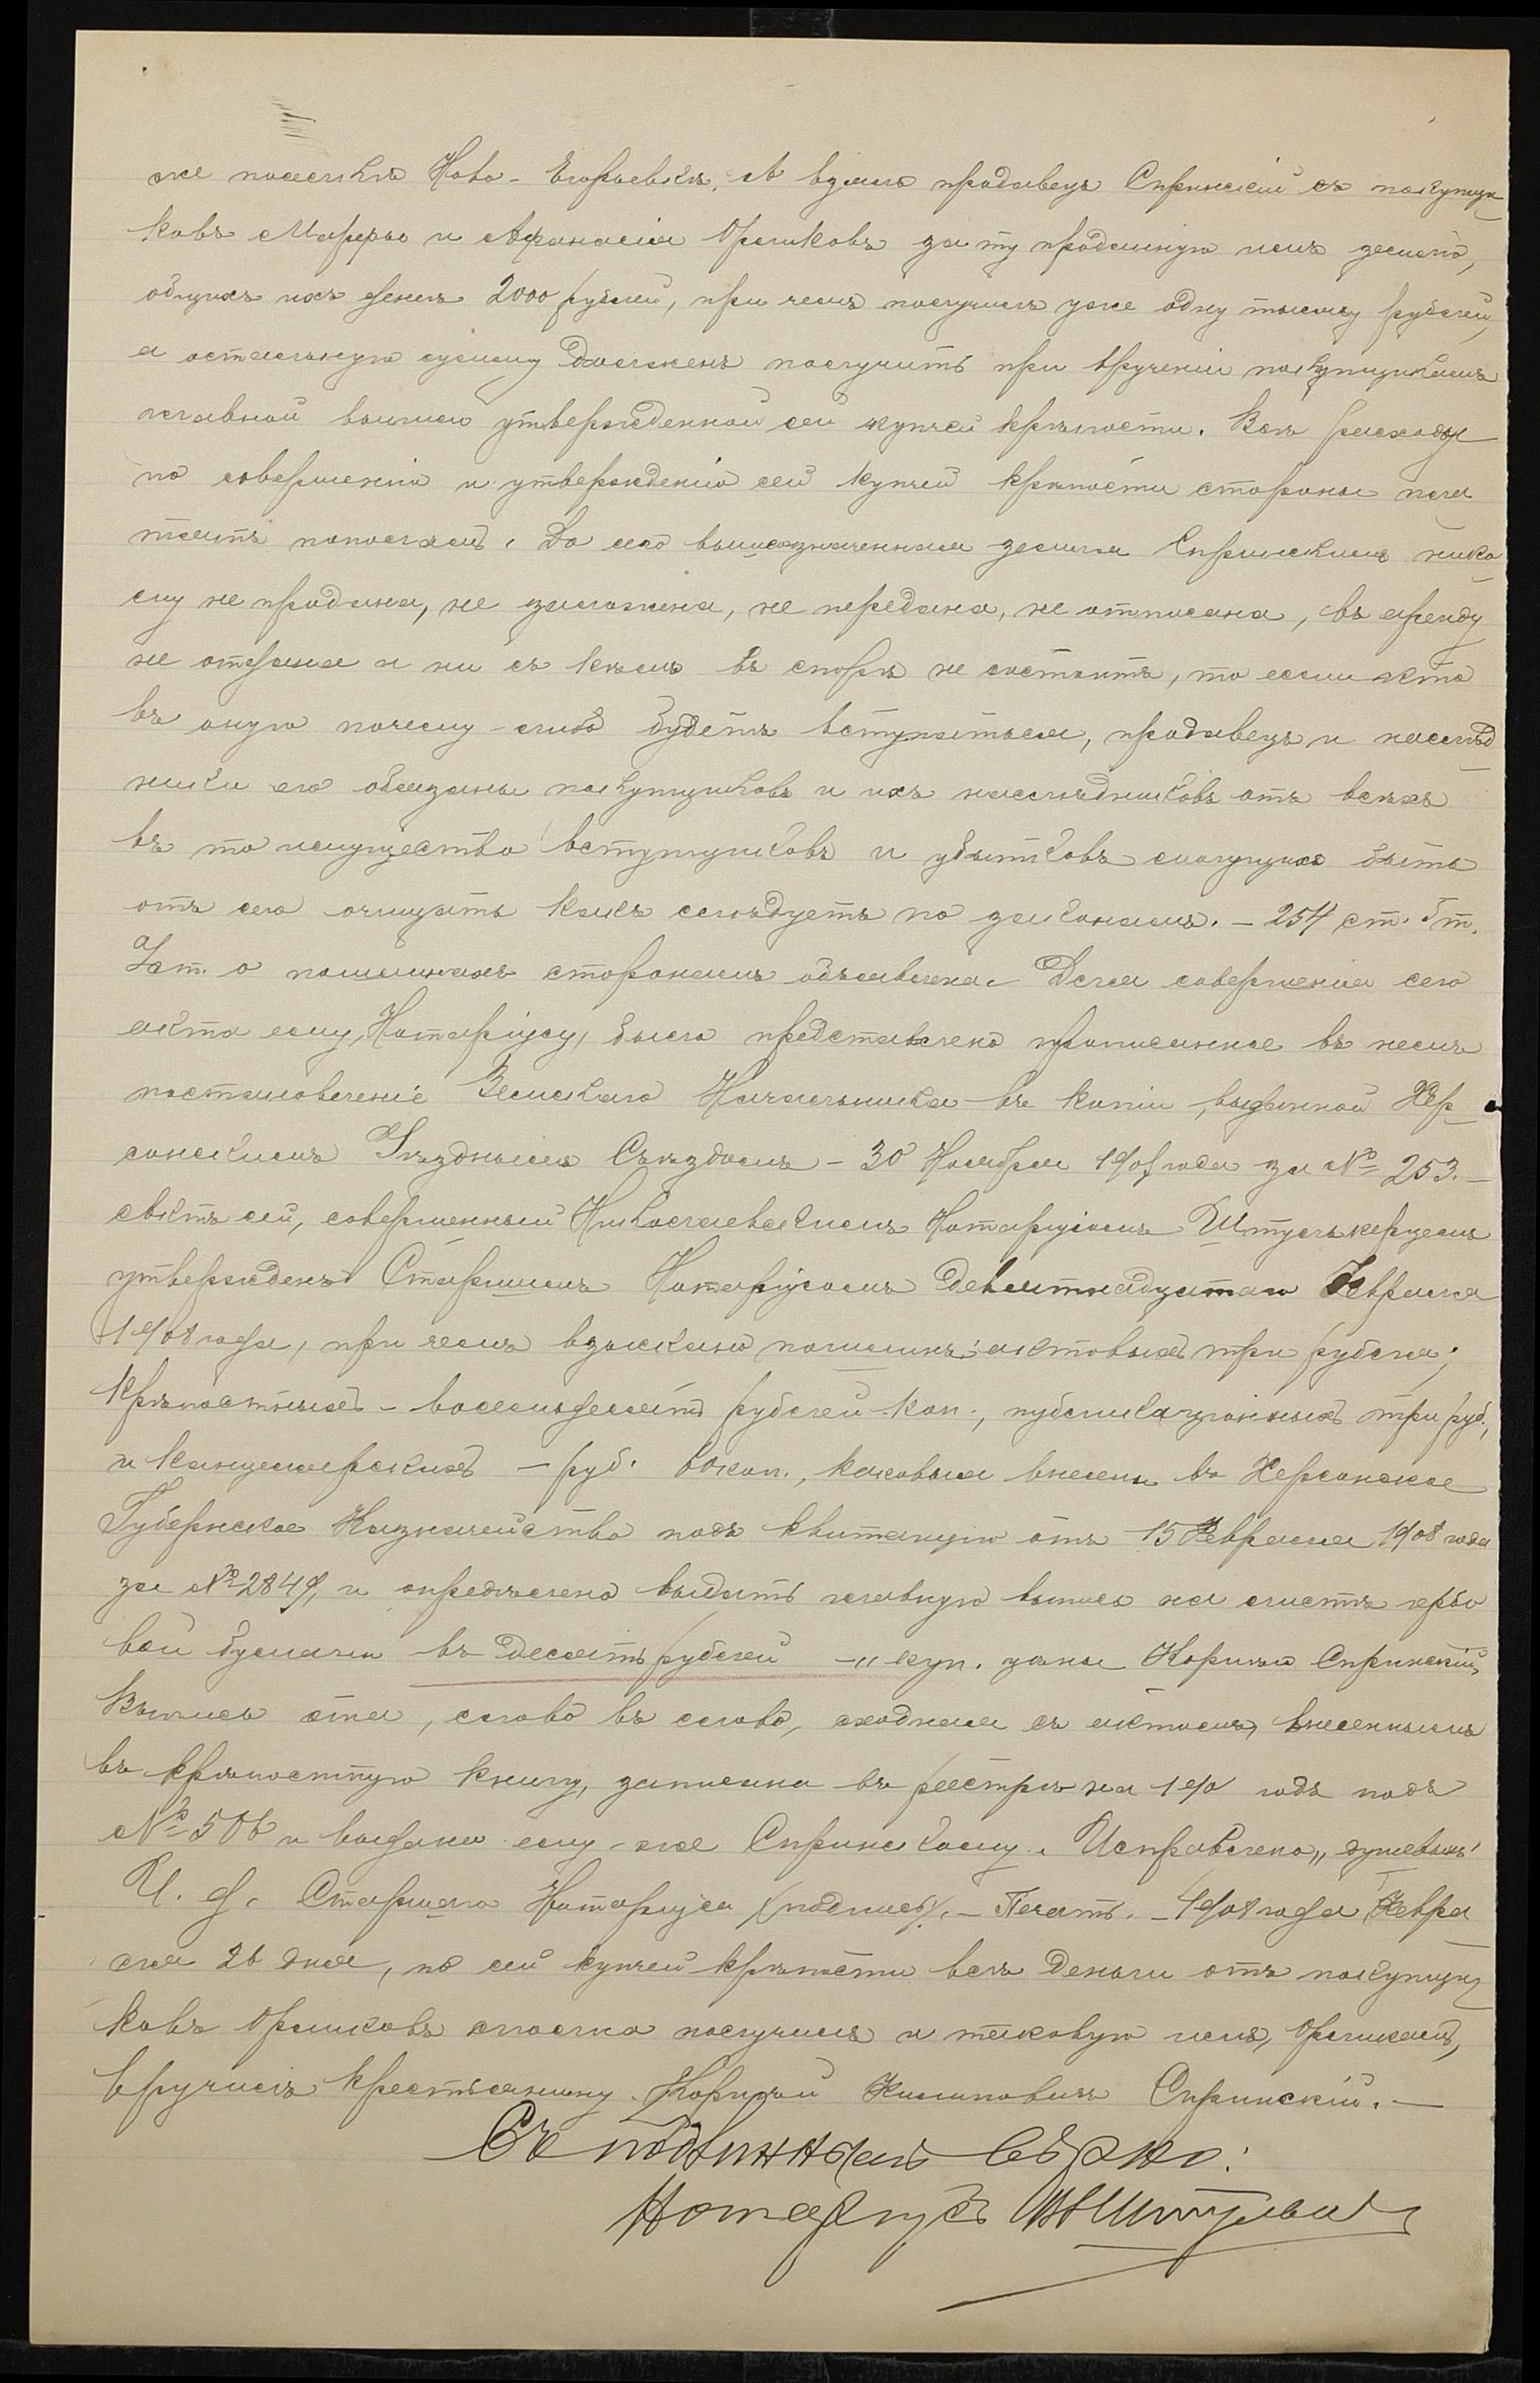 же поселкѣ Ново-Егорьевкѣ. А взялъ продавецъ Спринскій съ покупщи
ковъ Марѳы и Аѳанасія Орликовъ за ту проданную имъ землю,
общихъ ихъ денегъ 2000 рублей, при чемъ получилъ уже одну тысячу рублей,
а остальную сумму долженъ получить при врученіи покупщикамъ
главной выписи утвержденной сей купчей крѣпости. Всѣ расходы
по совершенію и утвержденію сей купчей крѣпости стороны пла
тятъ пополамъ. До сего вышеозначенная земля Спринскимъ нико
му не продана, не заложена, не передана, не отписана, въ аренду
не отдана и ни съ кѣмъ въ спорѣ не состоитъ, то если кто
въ оную почему-либо будетъ вступаться, продавецъ и наслѣд
ники его обязаны покупщиковъ и ихъ наслѣдниковъ отъ всѣхъ
въ то имущество вступщиковъ и убытковъ могущихъ быть
отъ сего очищать какъ слѣдуетъ по законамъ. – 254 ст. 5 т.
Уст. о пошлинахъ сторонамъ объявлена. Для совершенія сего
акта ему, Нотаріусу, было представлено прописанное въ немъ
постановленіе Земскаго Начальника въ копіи, выданной Хер
сонскимъ Уѣзднымъ Съѣздомъ – 30 Ноября 1907 года за № 253. –
Актъ сей, совершенный Николаевскимъ Нотаріусомъ
утвержденъ Старшимъ Нотаріусомъ девятнадцатаго Февраля
1908 года, при чемъ взыскано пошлинъ: актовыхъ три рубля;
крѣпостныхъ – восемьдесятъ рублей – коп., публикаціонныхъ три руб.,
и канцелярскихъ – руб. 60 коп., каковыя внесены въ Херсонское
Губернское Казначейство подъ квитанцію отъ 15 Февраля 1908 года
за № 2849, и опредѣлено выдать главную выпись на листѣ гербо
вой бумаги въ десять рублей – „ куп. цѣны Корнѣю Спринскій.
Выпись эта, слово въ слово, сходная съ актомъ, внесеннымъ
въ крѣпостную книгу, записана въ реестрѣ на 190 годъ подъ
№ 506 и выдана ему-же Спринскому. Исправлено „
И. д. Старшаго Нотаріуса (подпись). – Печать. – 1908 года Февра
ля 26 дня, по сей купчей крѣпости всѣ деньги отъ покупщи
ковъ Орликовъ сполна получилъ и таковую имъ, Орликамъ,
вручилъ крестьянинъ Корнѣй Спринскій. –
Съ подлиннымъ вѣрно:
Нотаріусъ